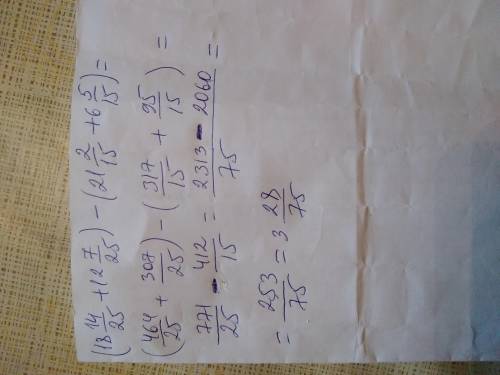 (18 14/25 + 12 7/25) - (21 2/15 + 6 5/15) =
(464/25 + 307/25) - (317/15 + 95/15) =
771/25 - 412/15 = 2313 - 2060/75 =
= 253/75 = 3 28/75